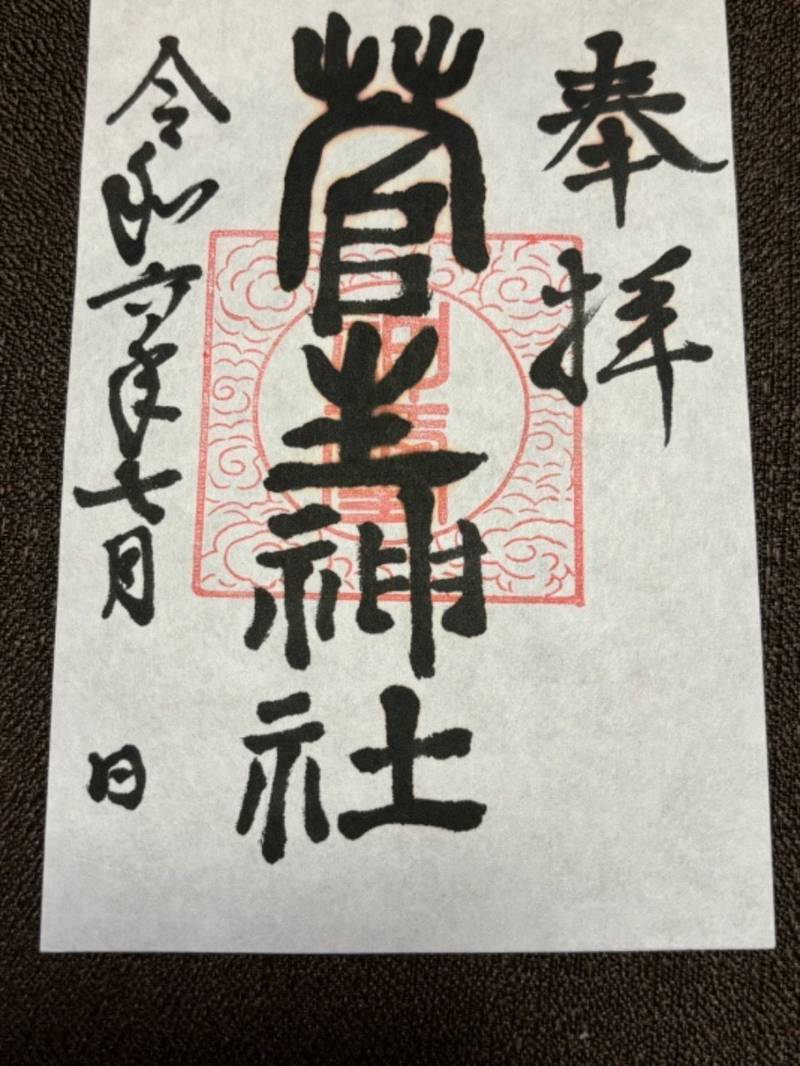 奉拝
菅生神社
令和六年七月 日